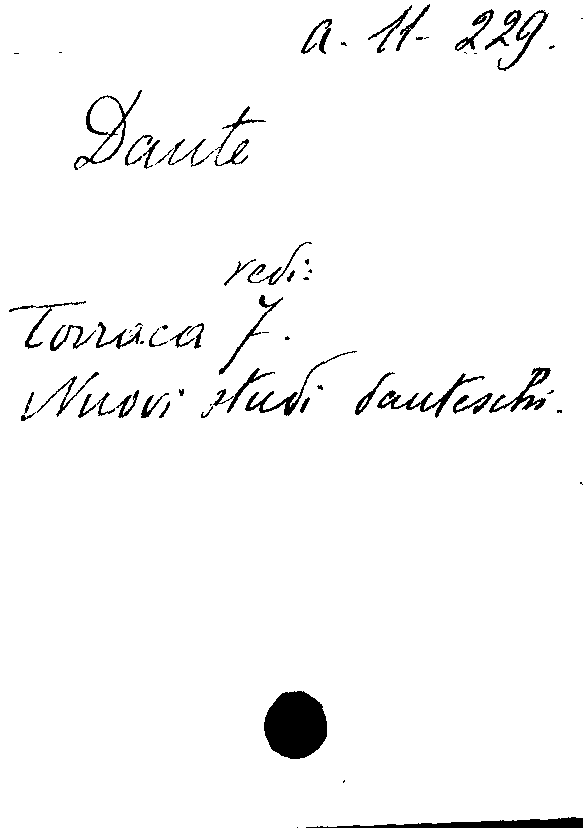 a. 11- 229.
Dante
vedi:
Torraca F.
Nuovi studi danteschi.